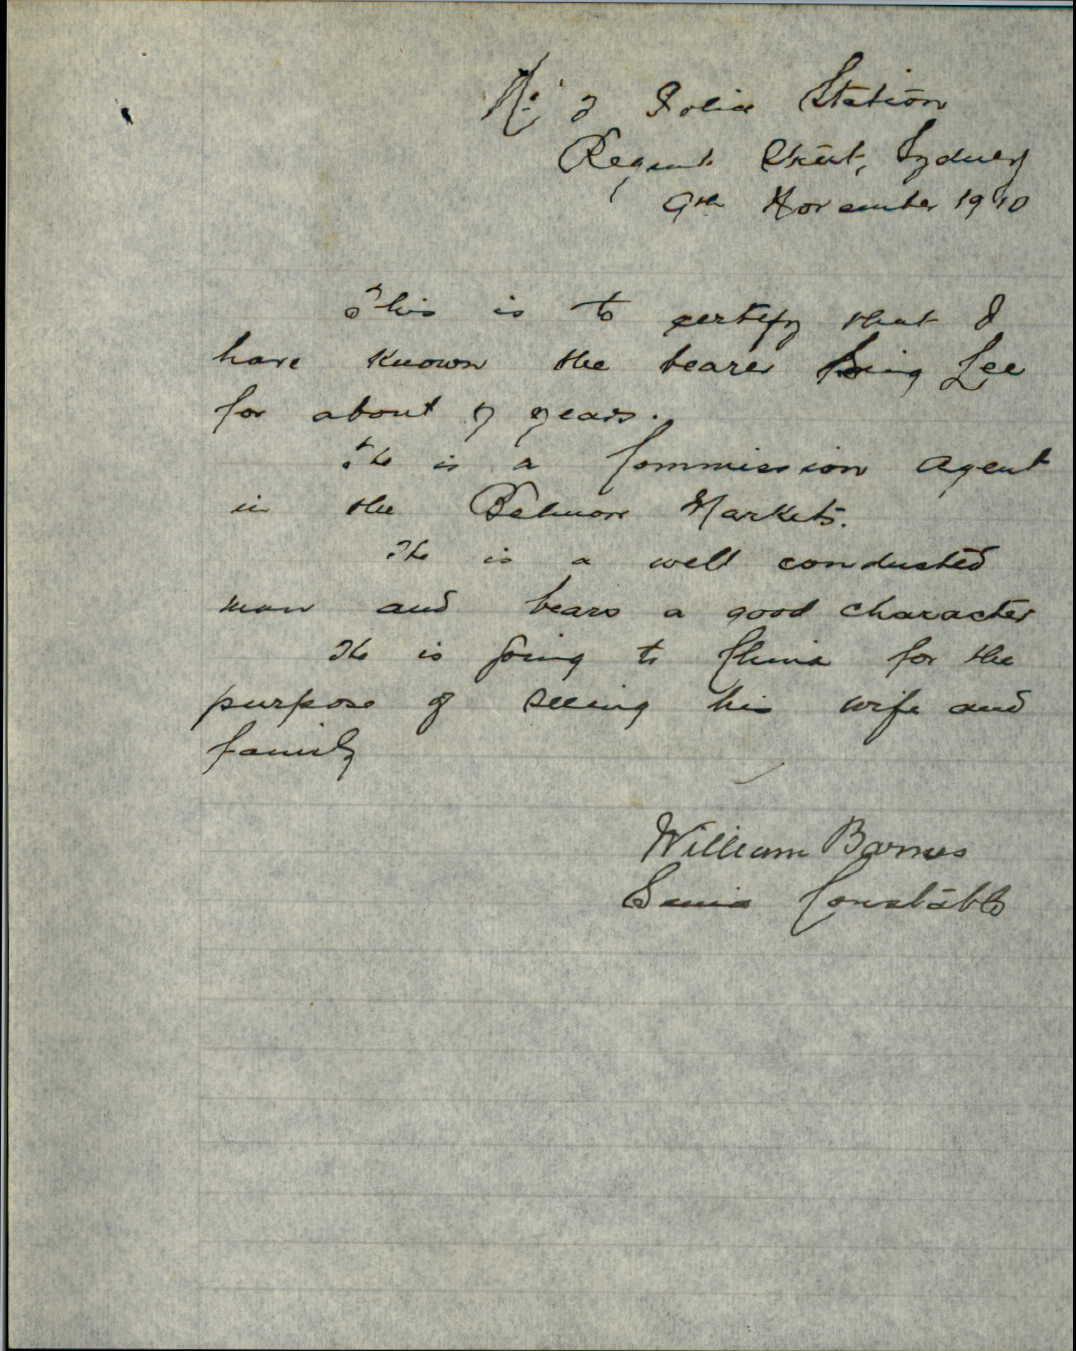 No. 2 Police Station
Regent Street, Sydney
9th November 1910
This is to certify that I
have known the bearer Lee
for about 7 years.
He is a Commission Agent
in the Belmore Markets.
He is a well conducted
man and bears a good character
He is going to China for the
purpose of seeing his wife and
family
William Barnes
Senior Constable